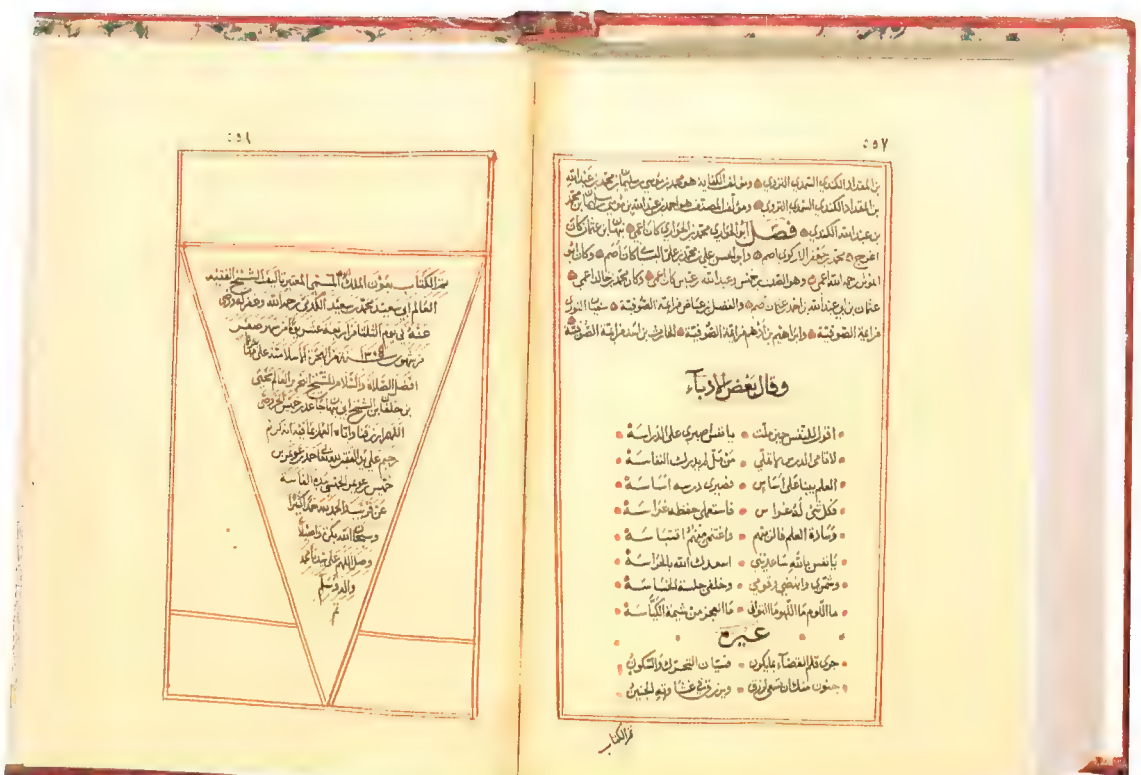 ٥٥٧
بن المقداد الكندي السمدي النزوي ومؤلف الكفاية هو محمد بن موسى بن سليمان بن محمد بن عبد الله
بن المقداد الكندي السمدي النزوي ومؤلف المصنف هو احمد بن عبد الله بن موسى بن سليمان بن محمد
بن عبد الله الكندي فصل ابو الحواري محمد بن الحواري كان اعمى نبهان بن عثمان كان
اعرج محمد بن جعفر الازكوي اصم وابو الحسن علي بن محمد بن علي كان اصم وكان ابو
المؤثر رحمه الله اعمى وهو الصلت بن خميس وعبد الله بن عباس كان اعمى وكان محمد بن خالد اعمى
عثمان بن ابي عبد الله بن احمد اصم والفضل بن عياض من ايمة الصوفية سفيان الثوري
من ايمة الصوفية وابراهيم بن ادهم من ايمة الصوفية الحارث بن اسد من ايمة الصوفية
وقال بعض الادباء
اقول للنفس حين ملت يا نفس اصبري على الدراسة
لاقامي الدرس لا تملي من مل لم يدرك النفاسة
العلم يبنا على اساس وصيري درسه اساسه
فكل شيء له غراس فاستعملي حفظه غراسة
وسادة العلم فالزميهم واغتنمي منهم اقتباسة
يا نفس بالله ساعديني اسعدك الله بالحراسة
وشمري وانهضي وقومي وخلفي جلسة الخساسة
ما اللوم ما اللهو ما التواني ما العجز من شيمة الكياسة
غيره
جرى قلم القضاء بما يكون فسيان التحرك والسكون
جنون منك ان تسعى لرزق ويرزق في غشاوته الجنين
تم الكتاب
٥٥٨
تم الكتاب بعون الملك تاليف الشيخ الفقيه
العالم ابي سعيد محمد بن سعيد الكدمي رحمه الله وغفر له ورضي
عنه في يوم الثلثا من شهر صفر
من شهور سنة ١٣٠٥ من الهجرة الاسلامية على مهاجرها
افضل الصلاة والسلام للشيخ العالم يحيى
بن خلفان بن الشيخ ابي نبهان جاعد بن خميس الخروصي
اللهم ارزقنا واياه العلم بما فيه انه كريم
رحيم على يد الفقير لله احمد بن
خميس بن بيده الفانية
عن والحمد لله حمدا كثيرا
وسبحان الله بكرة واصيلا
وصل اللهم على سيدنا محمد
واله وسلم
تم